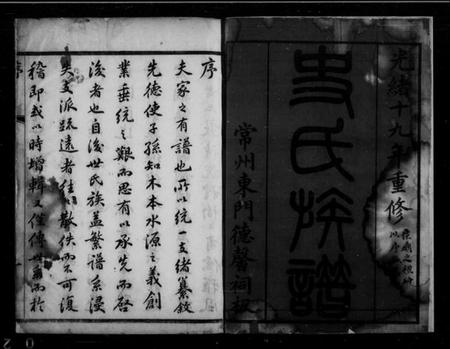 光緒十九年重修
史氏族譜
常州東門德馨祠板
序
夫家之有譜也所以統一支緒纂敘
先德使子孫知木本水源之義創
業垂統之艱而思有以承先而啟
後者也自後世氏族益繁譜系浸
失支派疏遠者往散佚而不可復
稽即或以時增輯又僅傳世而於
序
0 2